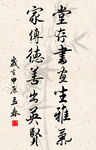 堂存書畫生雅氣
家傳德善出英賢
歲在甲辰孟春